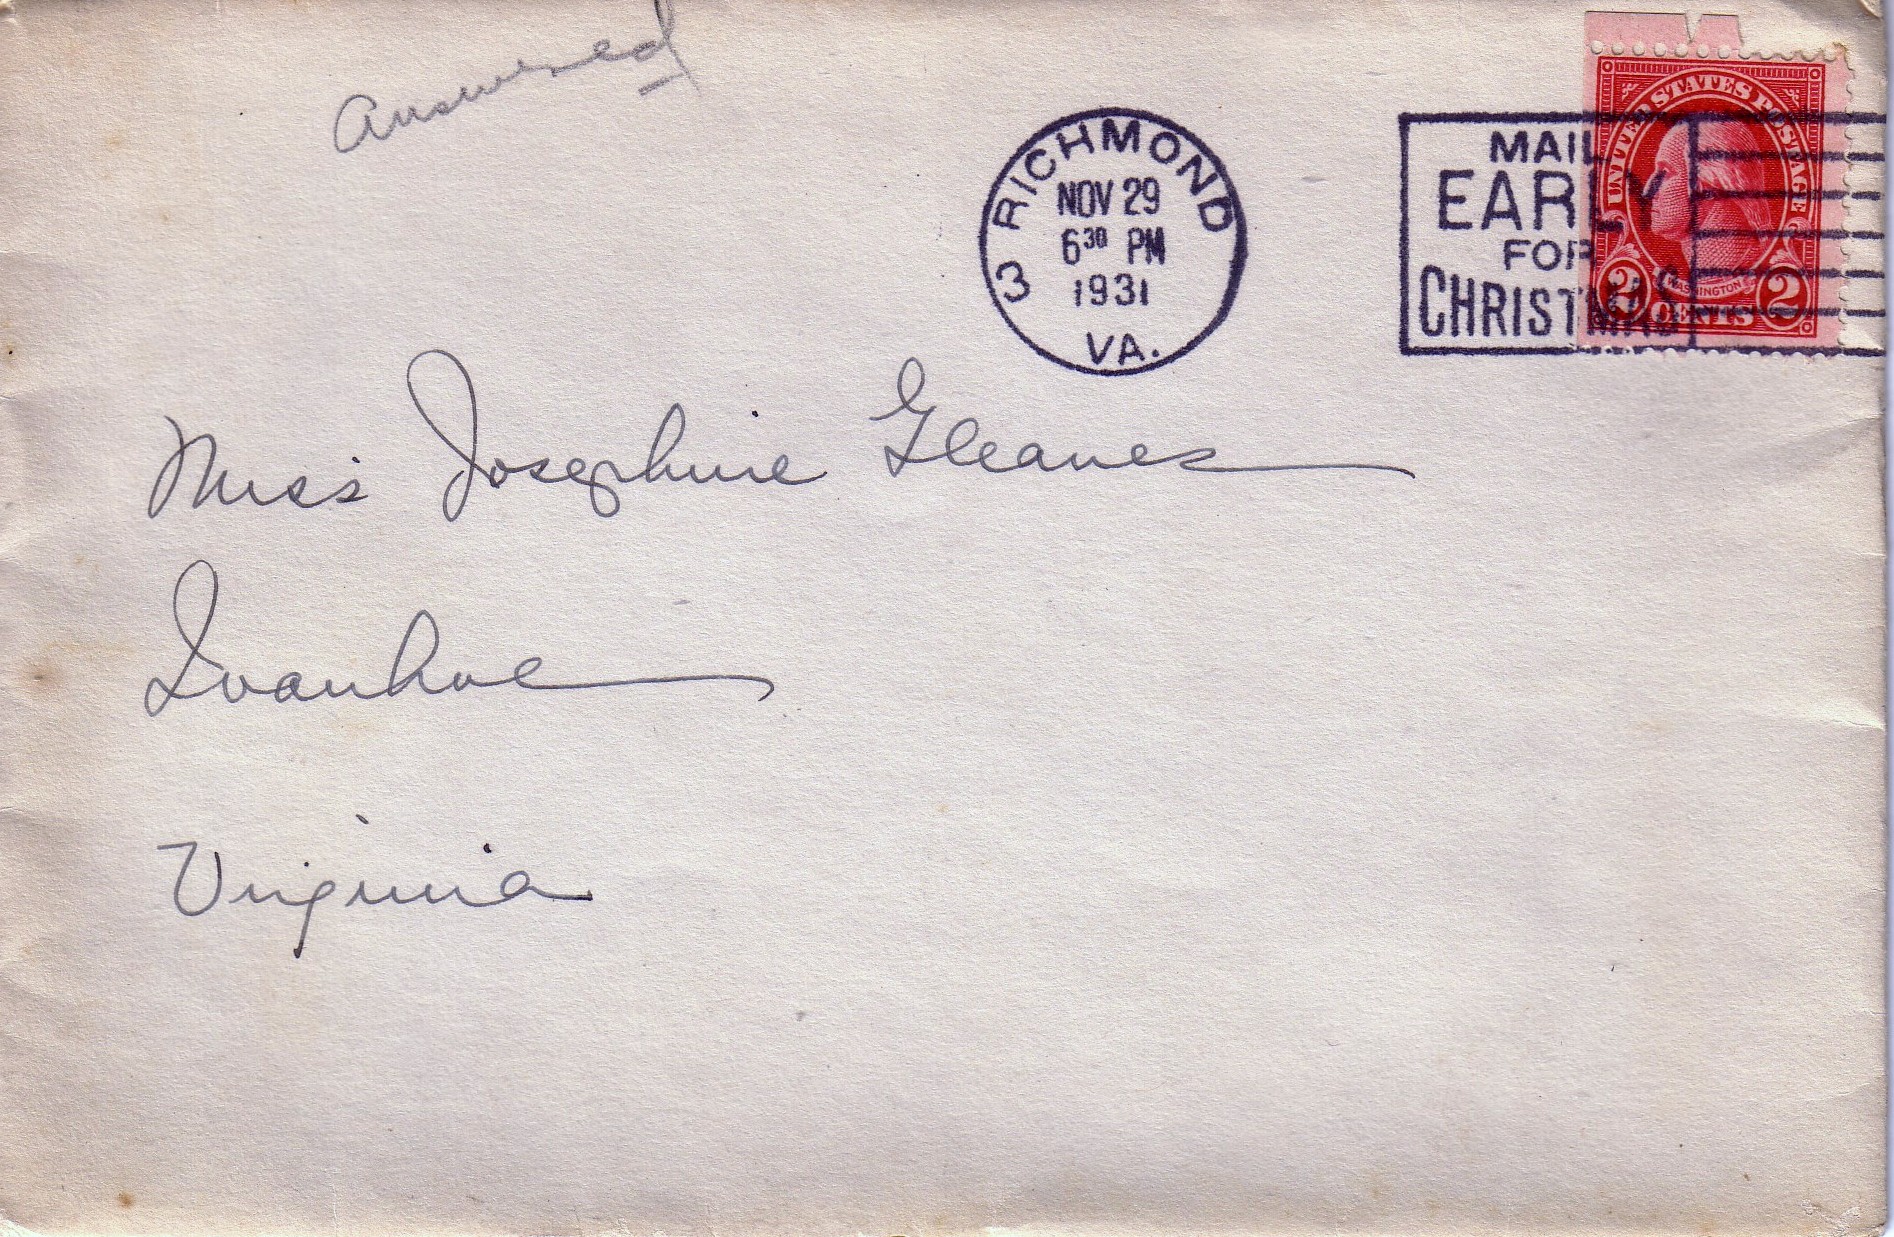 answered
RICHMOND
NOV 29
6 30 PM
1931
3
VA.
MAIL
EARLY
FOR
CHRISTMAS
UNITED STATES POSTAGE
WASHINGTON
2 CENTS 2
Miss Josephine Gleaves
Ivanhoe
Virginia